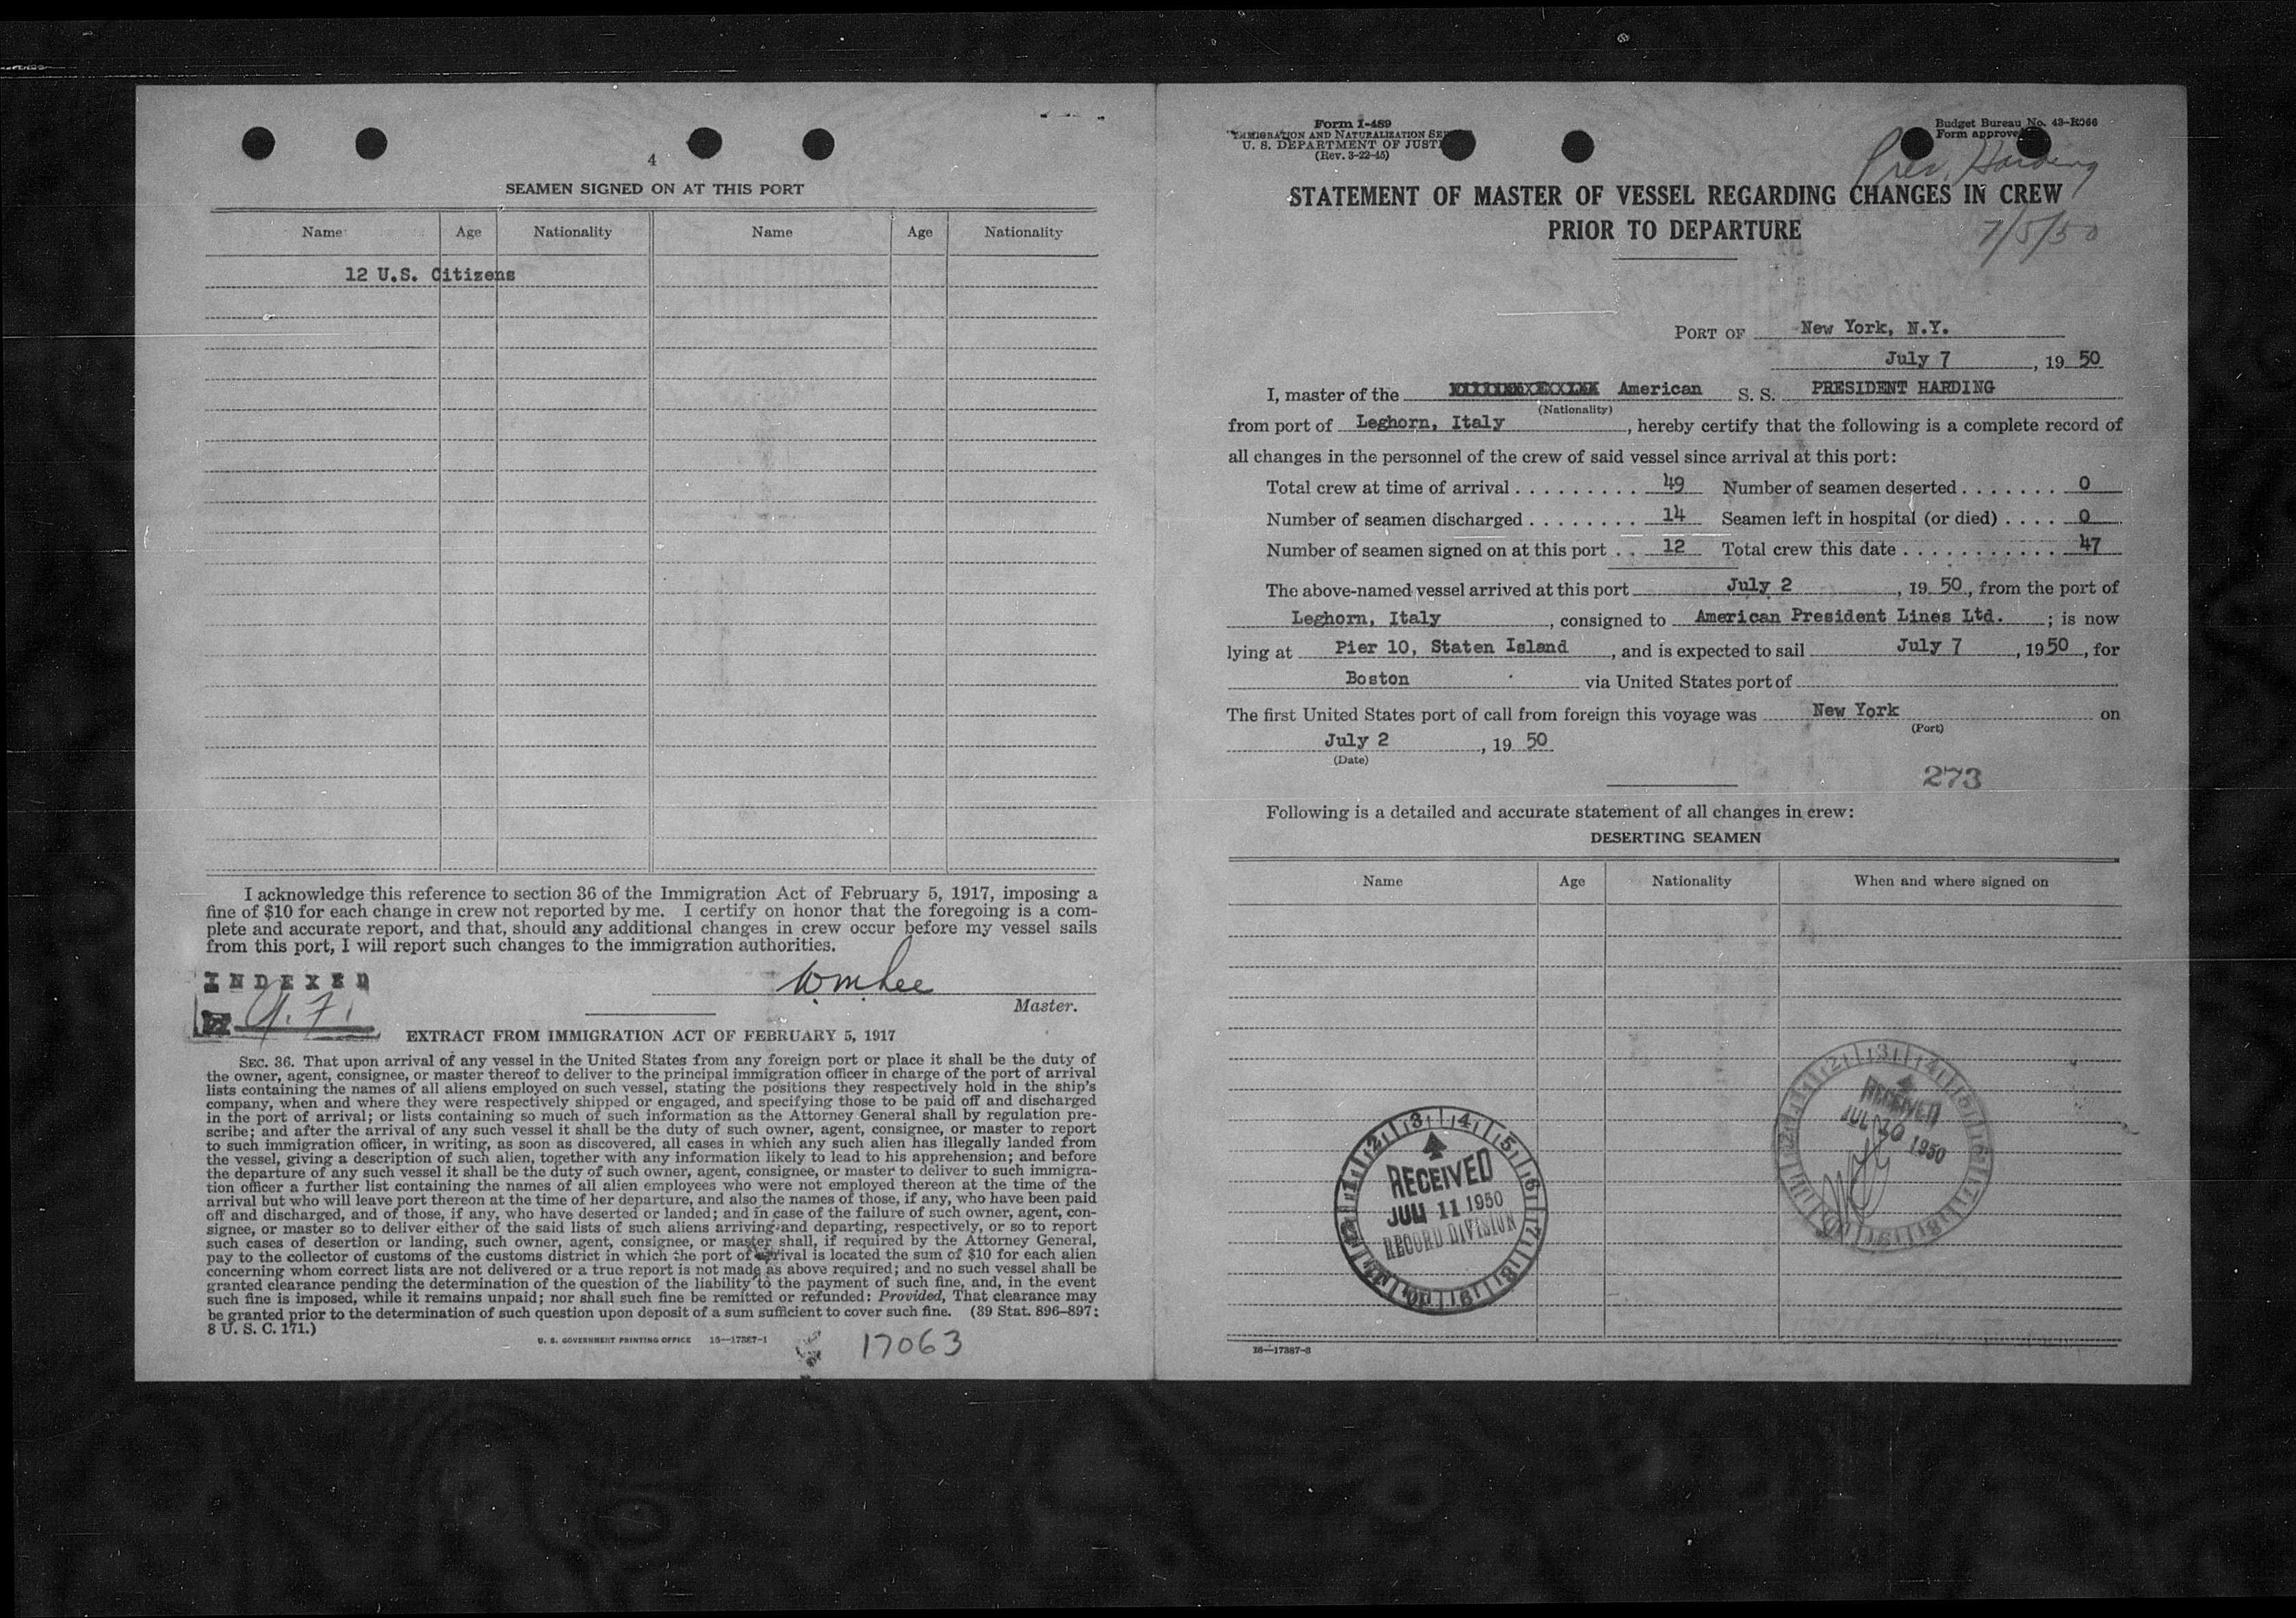 4
SEAMEN SIGNED ON AT THIS PORT
Name Age Nationality Name Age Nationality
12 U.S. Citizens
I acknowledge this reference to section 36 of the Immigration Act of February 5, 1917, imposing a
fine of $10 for each change in crew not reported by me. I certify on honor that the foregoing is a com-
plete and accurate report, and that, should any additional changes in crew occur before my vessel sails
from this port, I will report such changes to the immigration authorities.
INDEXED
Master.
EXTRACT FROM IMMIGRATION ACT OF FEBRUARY 5, 1917
SEC. 36. That upon arrival of any vessel in the United States from any foreign port or place it shall be the duty of
the owner, agent, consignee, or master thereof to deliver to the principal immigration officer in charge of the port of arrival
lists containing the names of all aliens employed on such vessel, stating the positions they respectively hold in the ship's
company, when and where they were respectively shipped or engaged, and specifying those to be paid off and discharged
in the port of arrival; or lists containing so much of such information as the Attorney General shall by regulation pre-
scribe; and after the arrival of any such vessel it shall be the duty of such owner, agent, consignee, or master to report
to such immigration officer, in writing, as soon as discovered, all cases in which any such alien has illegally landed from
the vessel, giving a description of such alien, together with any information likely to lead to his apprehension; and before
the departure of any such vessel it shall be the duty of such owner, agent, consignee, or master to deliver to such immigra-
tion officer a further list containing the names of all alien employees who were not employed thereon at the time of the
arrival but who will leave port thereon at the time of her departure, and also the names of those, if any, who have been paid
off and discharged, and of those, if any, who have deserted or landed; and in case of the failure of such owner, agent, con-
signee, or master so to deliver either of the said lists of such aliens arriving and departing, respectively, or so to report
such cases of desertion or landing, such owner, agent, consignee, or master shall, if required by the Attorney General,
pay to the collector of customs of the customs district in which the port of arrival is located the sum of $10 for each alien
concerning whom correct lists are not delivered or a true report is not made as above required; and no such vessel shall be
granted clearance pending the determination of the question of the liability to the payment of such fine, and, in the event
such fine is imposed, while it remains unpaid; nor shall such fine be remitted or refunded: Provided, That clearance may
be granted prior to the determination of such question upon deposit of a sum sufficient to cover such fine. (39 Stat. 896-897;
8 U. S. C. 171.)
U. S. GOVERNMENT PRINTING OFFICE 16—17387-1
17063
Form I-489
IMMIGRATION AND NATURALIZATION
U. S. DEPARTMENT OF
(Rev. 3-22-45)
Budget Bureau No. 43-R066
Form
Pres. Harding
STATEMENT OF MASTER OF VESSEL REGARDING CHANGES IN CREW
PRIOR TO DEPARTURE
7/5/50
PORT OF New York, N.Y.
July 7, 19 50
I, master of the American S. S. PRESIDENT HARDING
(Nationality)
from port of Leghorn, Italy, hereby certify that the following is a complete record of
all changes in the personnel of the crew of said vessel since arrival at this port:
Total crew at time of arrival . . . . . . . . . 49 Number of seamen deserted . . . . . . . 0
Number of seamen discharged . . . . . . . . 14 Seamen left in hospital (or died) . . . . 0
Number of seamen signed on at this port . . 12 Total crew this date . . . . . . . . . . . . 47
The above-named vessel arrived at this port July 2, 19 50, from the port of
Leghorn, Italy, consigned to American President Lines Ltd. ; is now
lying at Pier 10, Staten Island, and is expected to sail July 7, 19 50, for
Boston via United States port of
The first United States port of call from foreign this voyage was New York on
(Port)
July 2, 19 50
(Date)
273
Following is a detailed and accurate statement of all changes in crew:
DESERTING SEAMEN
Name Age Nationality When and where signed on
RECEIVED
JUL 10 1950
RECEIVED
JUL 11 1950
RECORD DIVISION
16—17387-3